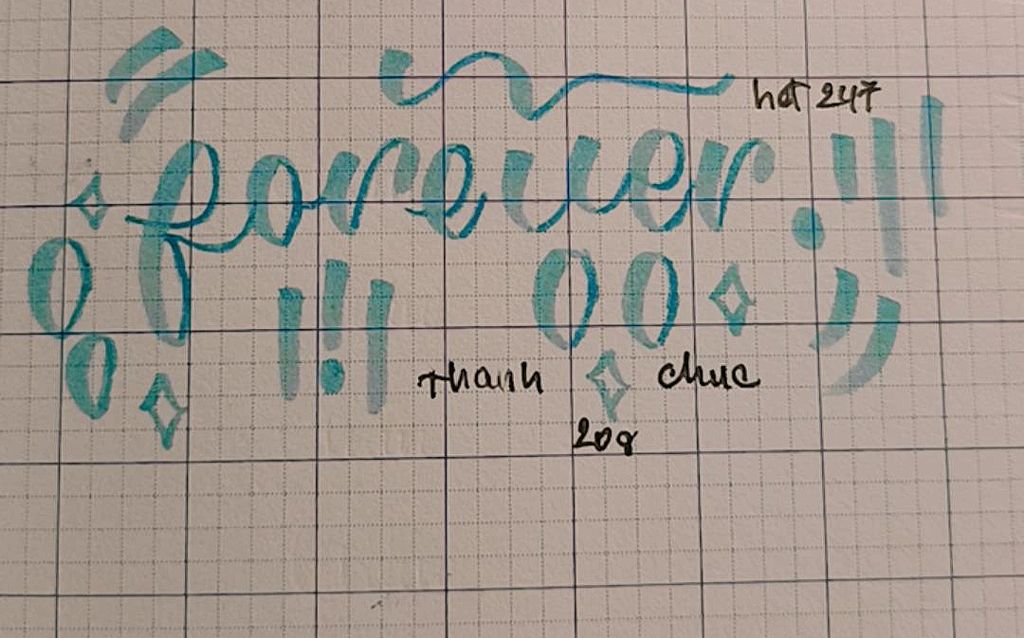 hđt 247
forever.
thanh chuc
208